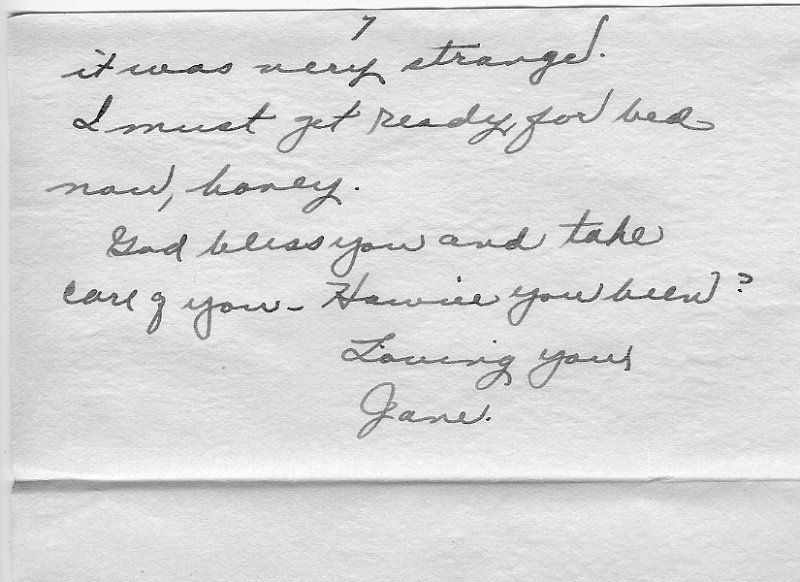 7
it was very strange.
I must get ready for bed
now, honey.
God bless you and take
care of you - Howvie you been?
Loving you,
Jane.